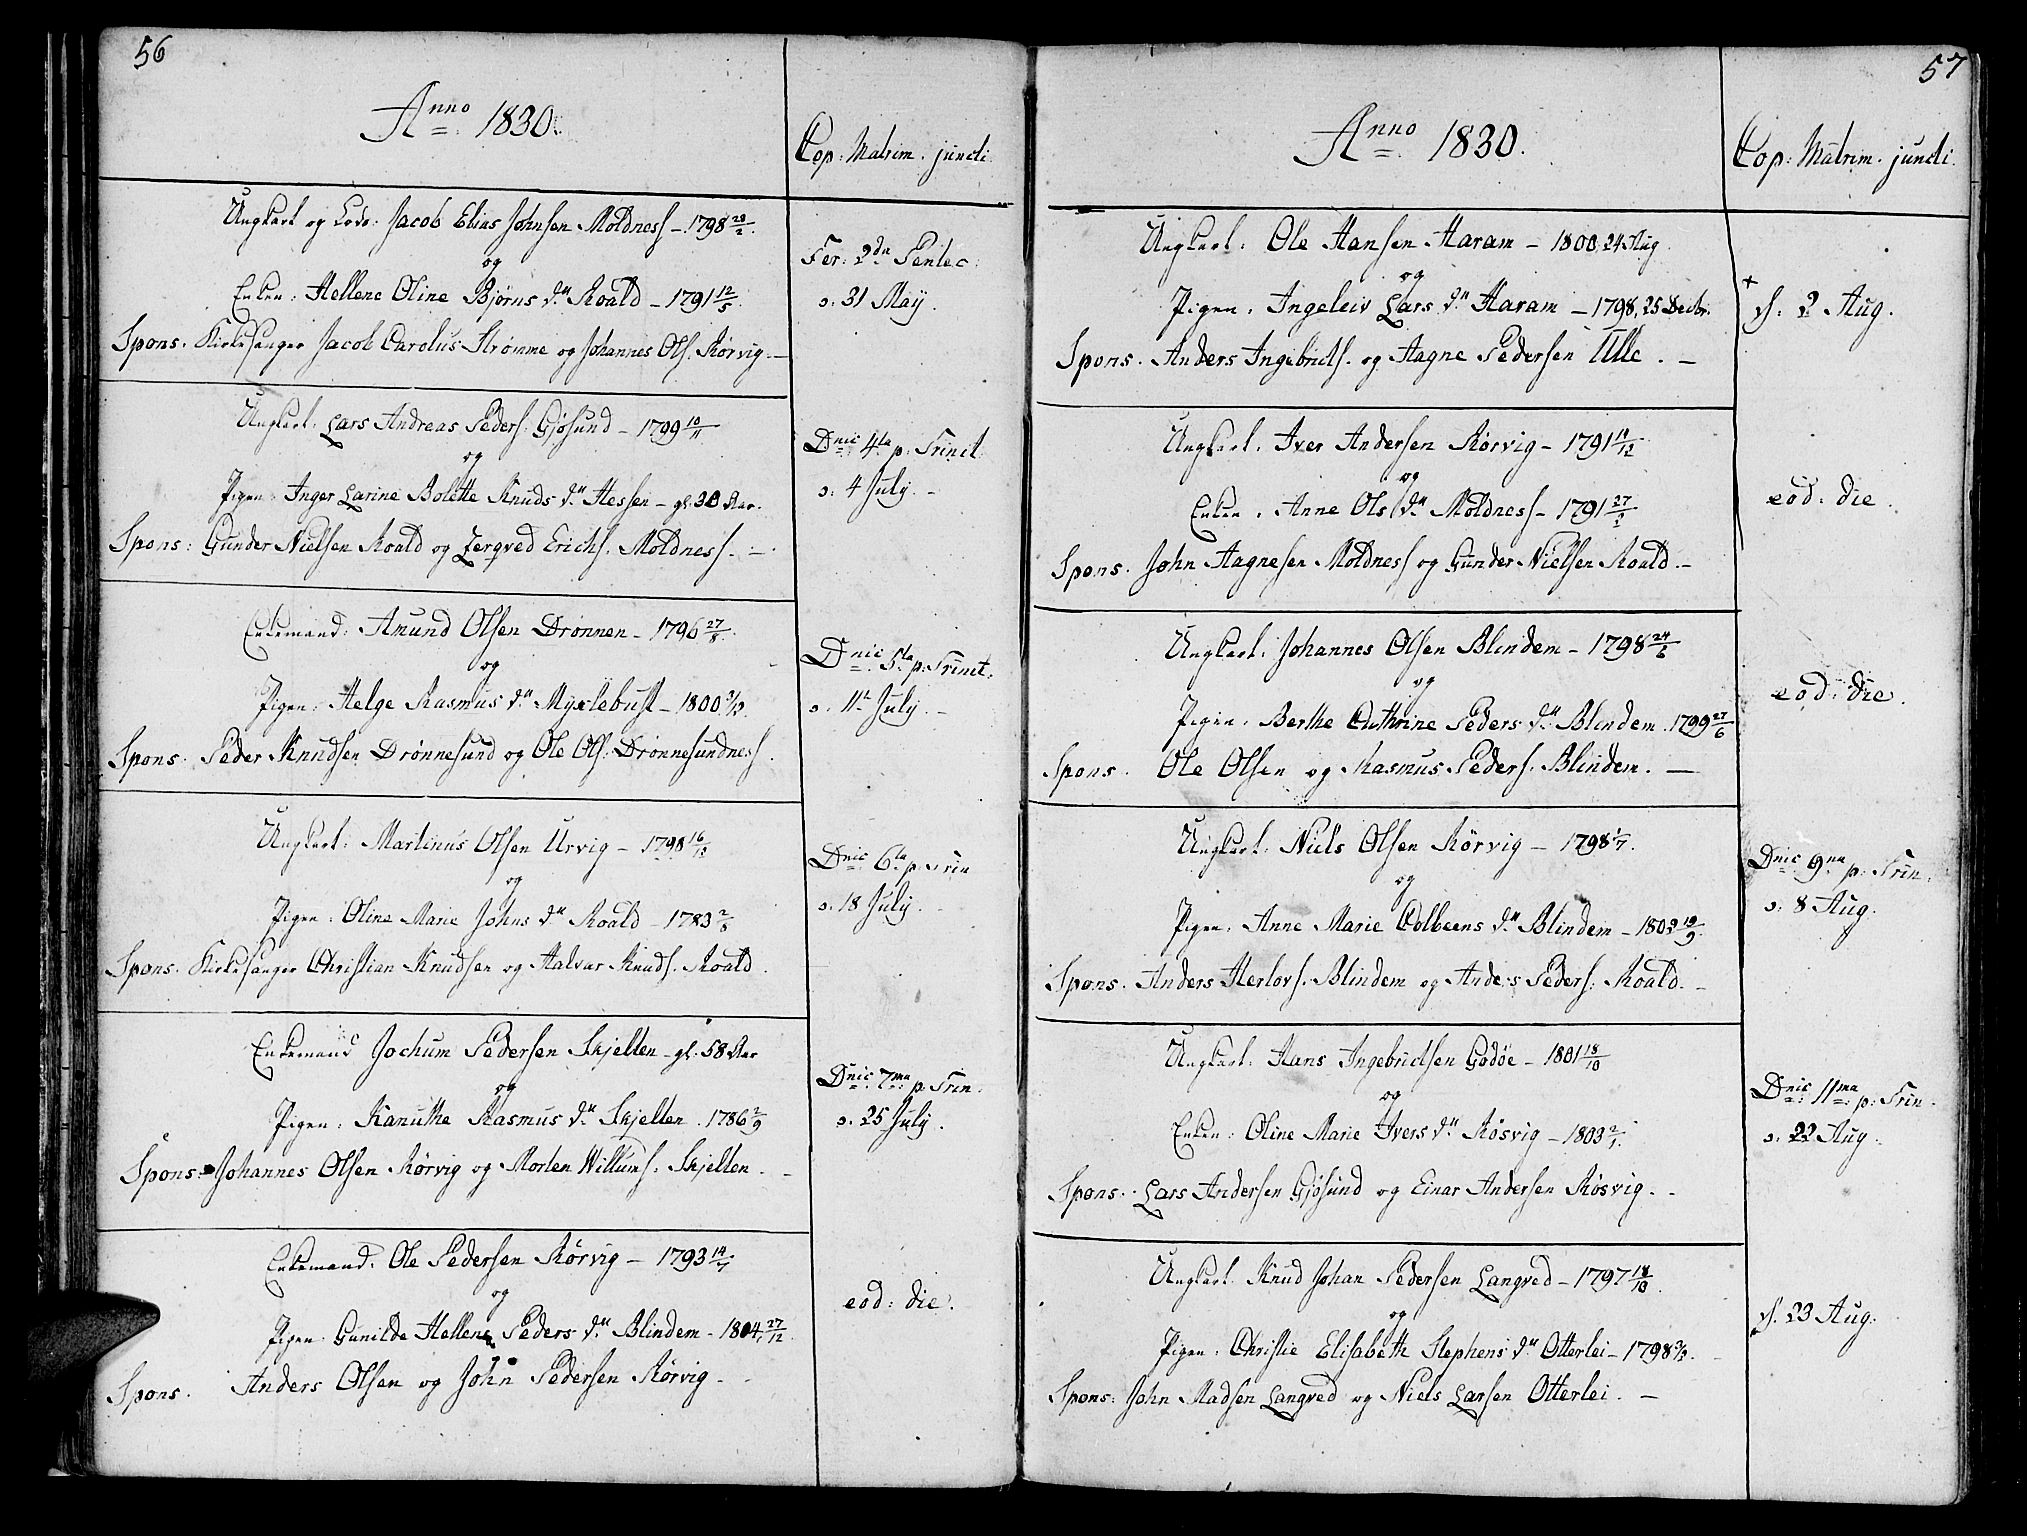 56
Anno 1830.
Cop: Matrim. juncti
Ungkarl og Lods: Jacob Elias Johnsen Moldness - 1798 28/2.
og
Enken: Hellene Oline Bjørns d.tr Roald - 1791 12/5.
Spons. Kirkesanger Jacob Carolus Strømme og Johannes Ols. Rørvig. -
Fer: 2da Pentec:
o: 31 May.
Ungkarl: Lars Andreas Peders. Gjøsund - 1799 10/11.
og
Pigen: Inger Larine Bolette Knuds d.tr Hessen - gl. 30 Aar.
Spons: Gunder Nielsen Roald og Zerqved Erichs. Moldness. -
Dnic 4ta p: Trinit.
o: 4 July. -
Enkemand: Amund Olsen Drønnen - 1796 27/8.
og
Pigen: Helge Rasmus d.tr Myxlebust - 1800 3/12.
Spons. Peder Knudsen Drønnesund og Ole Ols. Drønnesundness.
Dnic 5ta p: Trinit.
o. 11te July. -
Ungkarl: Martinus Olsen Urvig - 1798 16/12
og
Pigen: Oline Marie Johns d.tr Roald - 1783 2/8
Spons. Kirkesanger Christian Knudsen og Halvar Knuds. Roald.
Dnic 6ta p: Trin
o. 18 July.
Enkemand Jochum Pedersen Skjelten - gl. 58 Aar
og
Pigen: Kanuthe Rasmus d.tr Skjelten. 1786 2/9
Spons. Johannes Olsen Rørvig og Morten Willums. Skjelten. -
Dnic 7ma p. Trin.
o. 25 July.
Enkemand. Ole Pedersen Rørvig - 1793 14/7
og
Pigen: Gunilde Hellene Peders d.tr Blindem - 1804 27/12.
Spons. Anders Olsen og John Pedersen Rørvig. -
eod: die.
57
Anno 1830.
Cop: Matrim. juncti.
Ungkarl. Ole Hansen Haram - 1800, 24 Aug.
og
Pigen. Ingeleiv Lars d.tr Haram - 1798, 25 Decbr.
Spons. Anders Ingebricts. og Hagne Pedersen Ulle. -
d. 2 Aug.
Ungkarl. Iver Andersen Rørvig - 1791 11/12
og
Enken. Anne Ols d.tr Moldness - 1791 27/2
Spons. John Hagnesen Moldness og Gunder Nielsen Roald. -
eod: die.
Ungkarl. Johannes Olsen Blindem - 1798 24/6
og
Pigen. Berthe Cathrine Peders d.tr Blindem. 1799 27/6
Spons. Ole Olsen og Rasmus Peders. Blindem. -
eod: die.
Ungkarl. Niels Olsen Rørvig - 1798 1/7.
og
Pigen. Anne Marie Colbeens d.tr Blindem - 1803 19/9.
Spons. Anders Herlovs. Blindem og Anders Peders. Roald. -
Dnic 9na p: Trin.
o: 8 Aug.
Ungkarl: Hans Ingebrictsen Godøe - 1801 18/10
og
Enken: Oline Marie Ivers d.tr Røsvig - 1803 2/7.
Spons. Lars Andersen Gjøsund og Einar Andersen Røsvig. -
Dnic 11ma p: Trin.
o. 22 Aug.
Ungkarl. Knud Johan Pedersen Langved - 1797 18/10.
og
Pigen: Christie Elisabeth Stephens d.tr Otterlei - 1798 3/12.
Spons: John Madsen Langved og Niels Larsen Otterlei. -
d. 23 Aug.